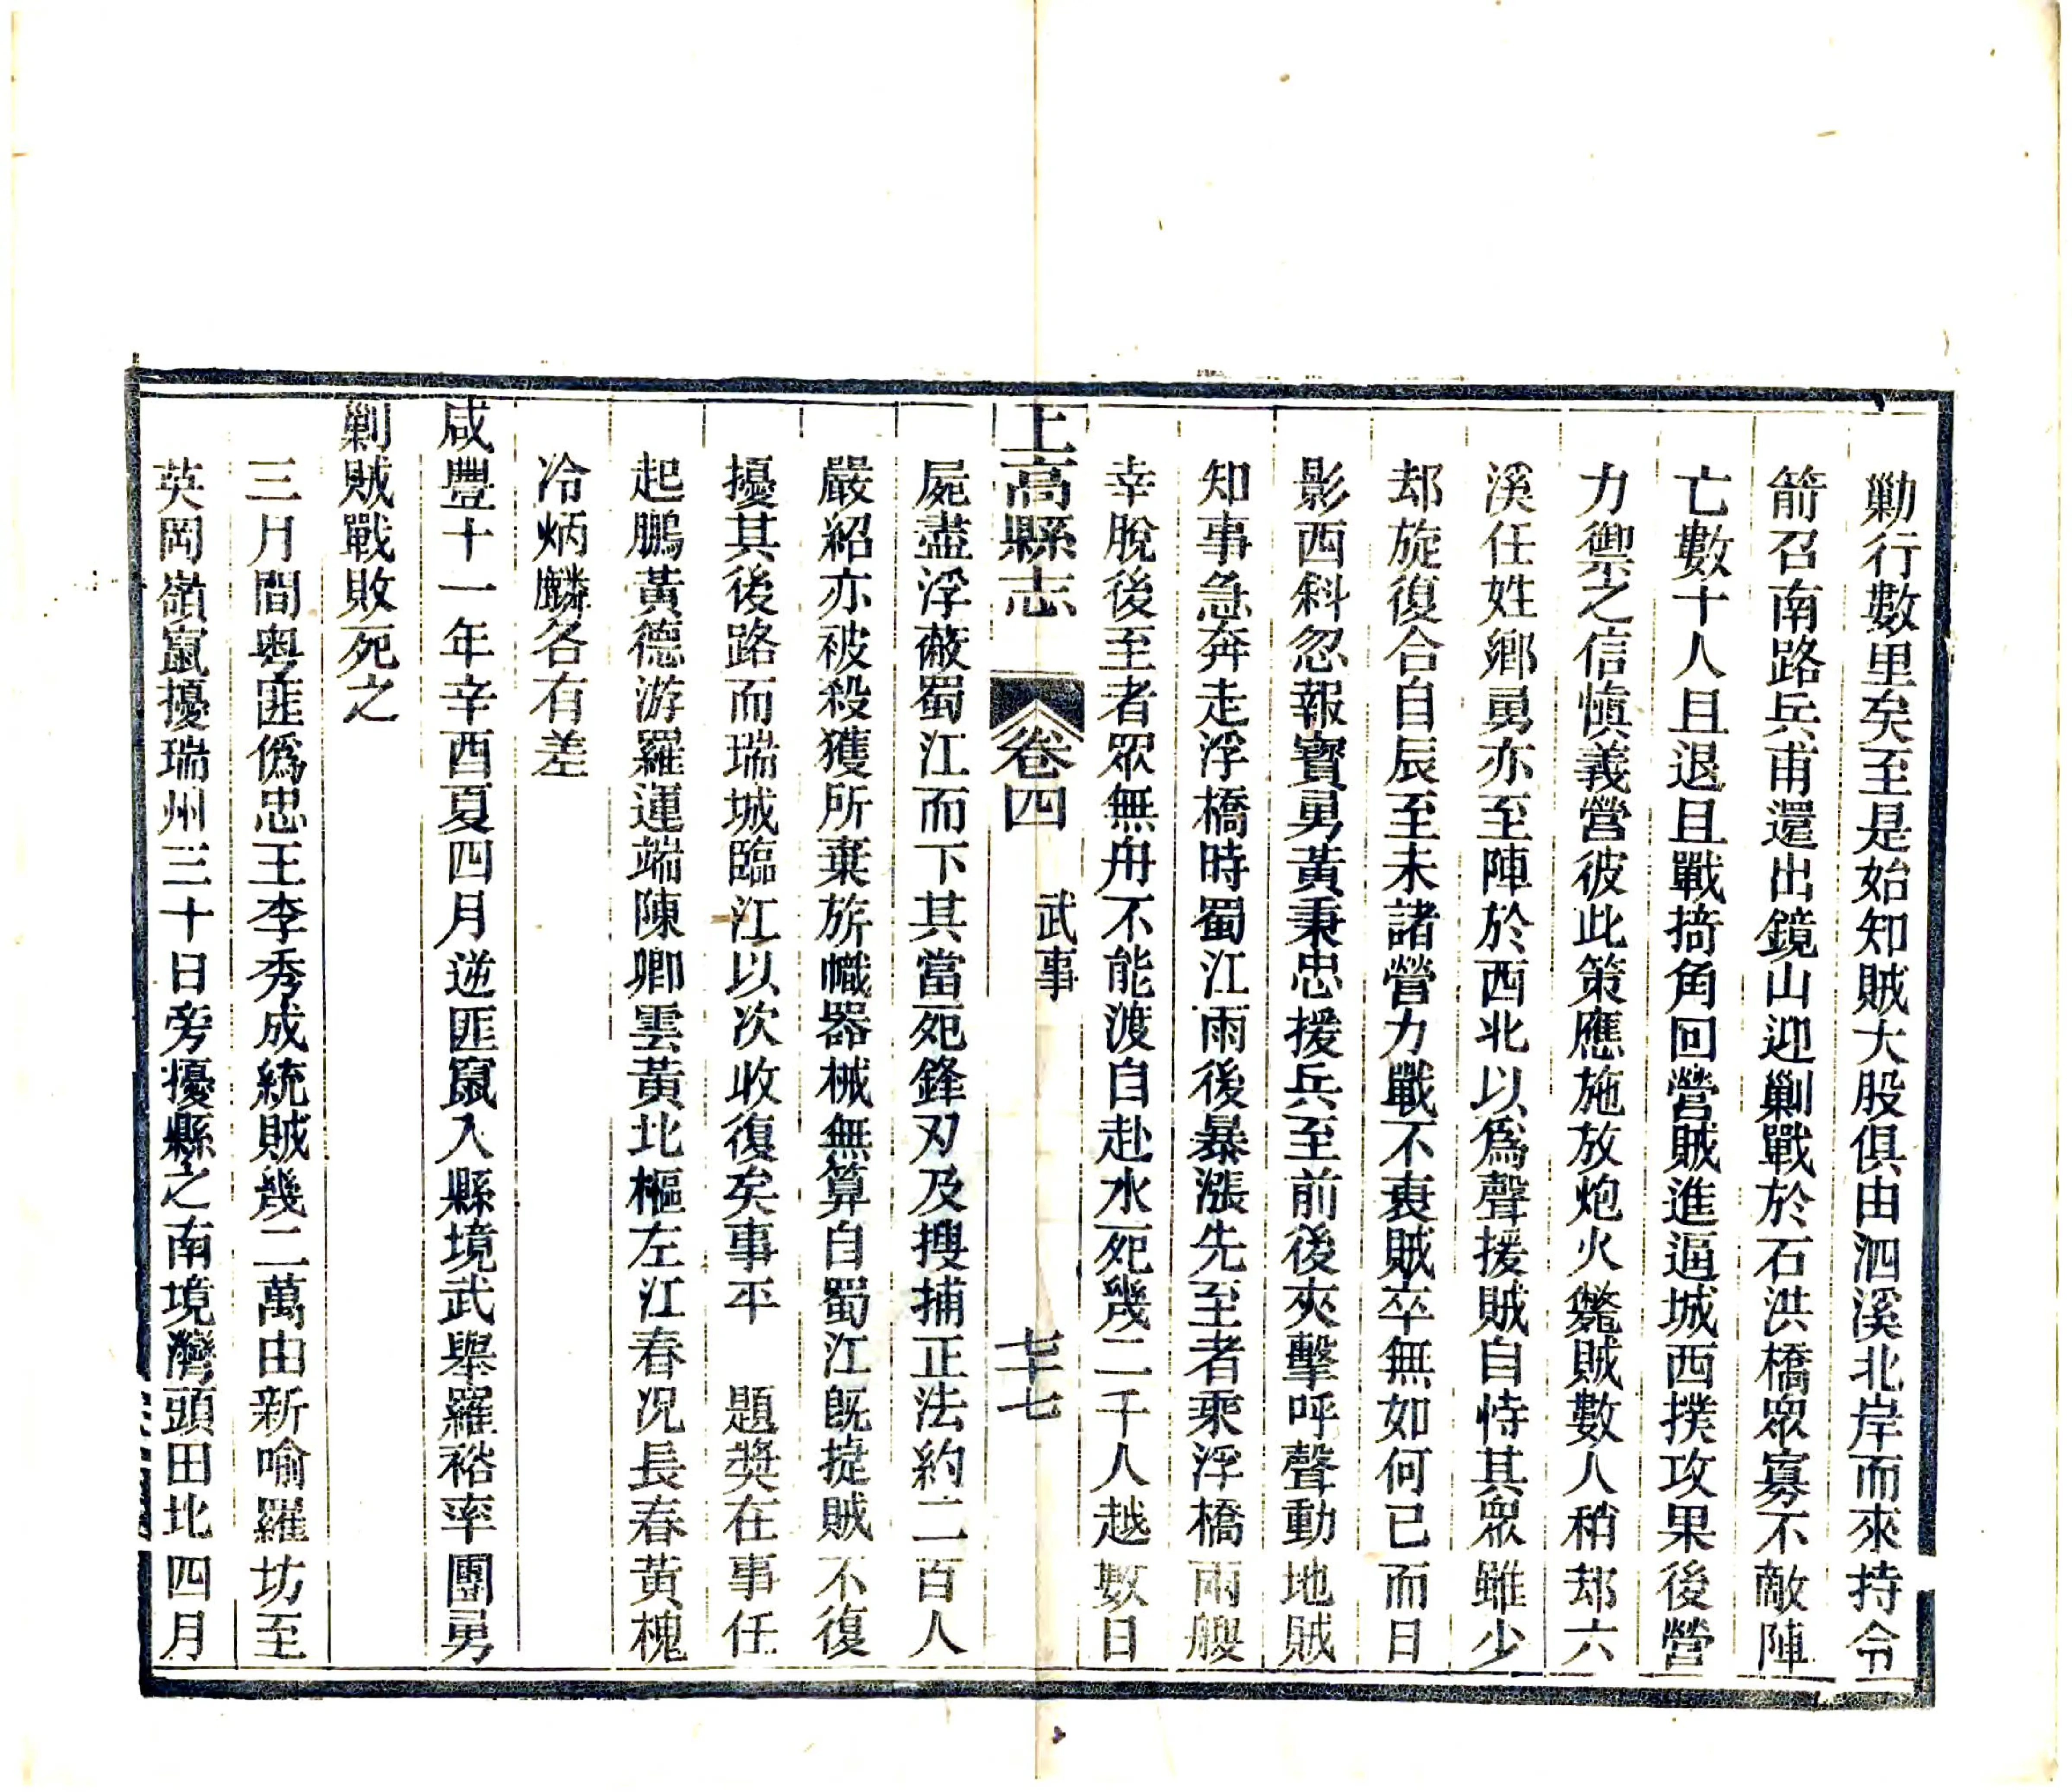 勦行數里矣至是始知賊大股俱由泗溪北岸而來持令
箭召南路兵甫還出鏡山迎剿戰於石洪橋眾寡不敵陣
亡數十人且退且戰掎角回營賊進逼城西撲攻果後營
力禦之信慎義營彼此策應施放炮火斃賊數人稍郄六
溪任姓鄉勇亦至陣於西北以爲聲援賊自恃其眾雖少
郄旋復合自辰至未諸營力戰不衰賊卒無如何已而日
影西斜忽報寶勇黃秉忠援兵至前後夾擊呼聲動地賊
知事急奔走浮橋時蜀江雨後暴漲先至者乘浮橋兩艘
幸脫後至者眾無舟不能渡自赴水死幾二千人越數日
上高縣志 卷四 武事 七十七
屍盡浮蔽蜀江而下其當死鋒刃及搜捕正法約二百人
嚴紹亦被殺獲所棄旂幟器械無算自蜀江既捷賊不復
擾其後路而瑞城臨江以次收復矣事平 題獎在事任
起鵬黃德游羅運端陳卿雲黃北樞左江春况長春黃槐
冷炳麟各有差
咸豐十一年辛酉夏四月逆匪竄入縣境武舉羅裕率團勇
剿賊戰敗死之
三月間粤匪僞忠王李秀成統賊幾二萬由新喻羅坊至
英岡嶺竄擾瑞州三十日旁擾縣之南境灣頭田北四月